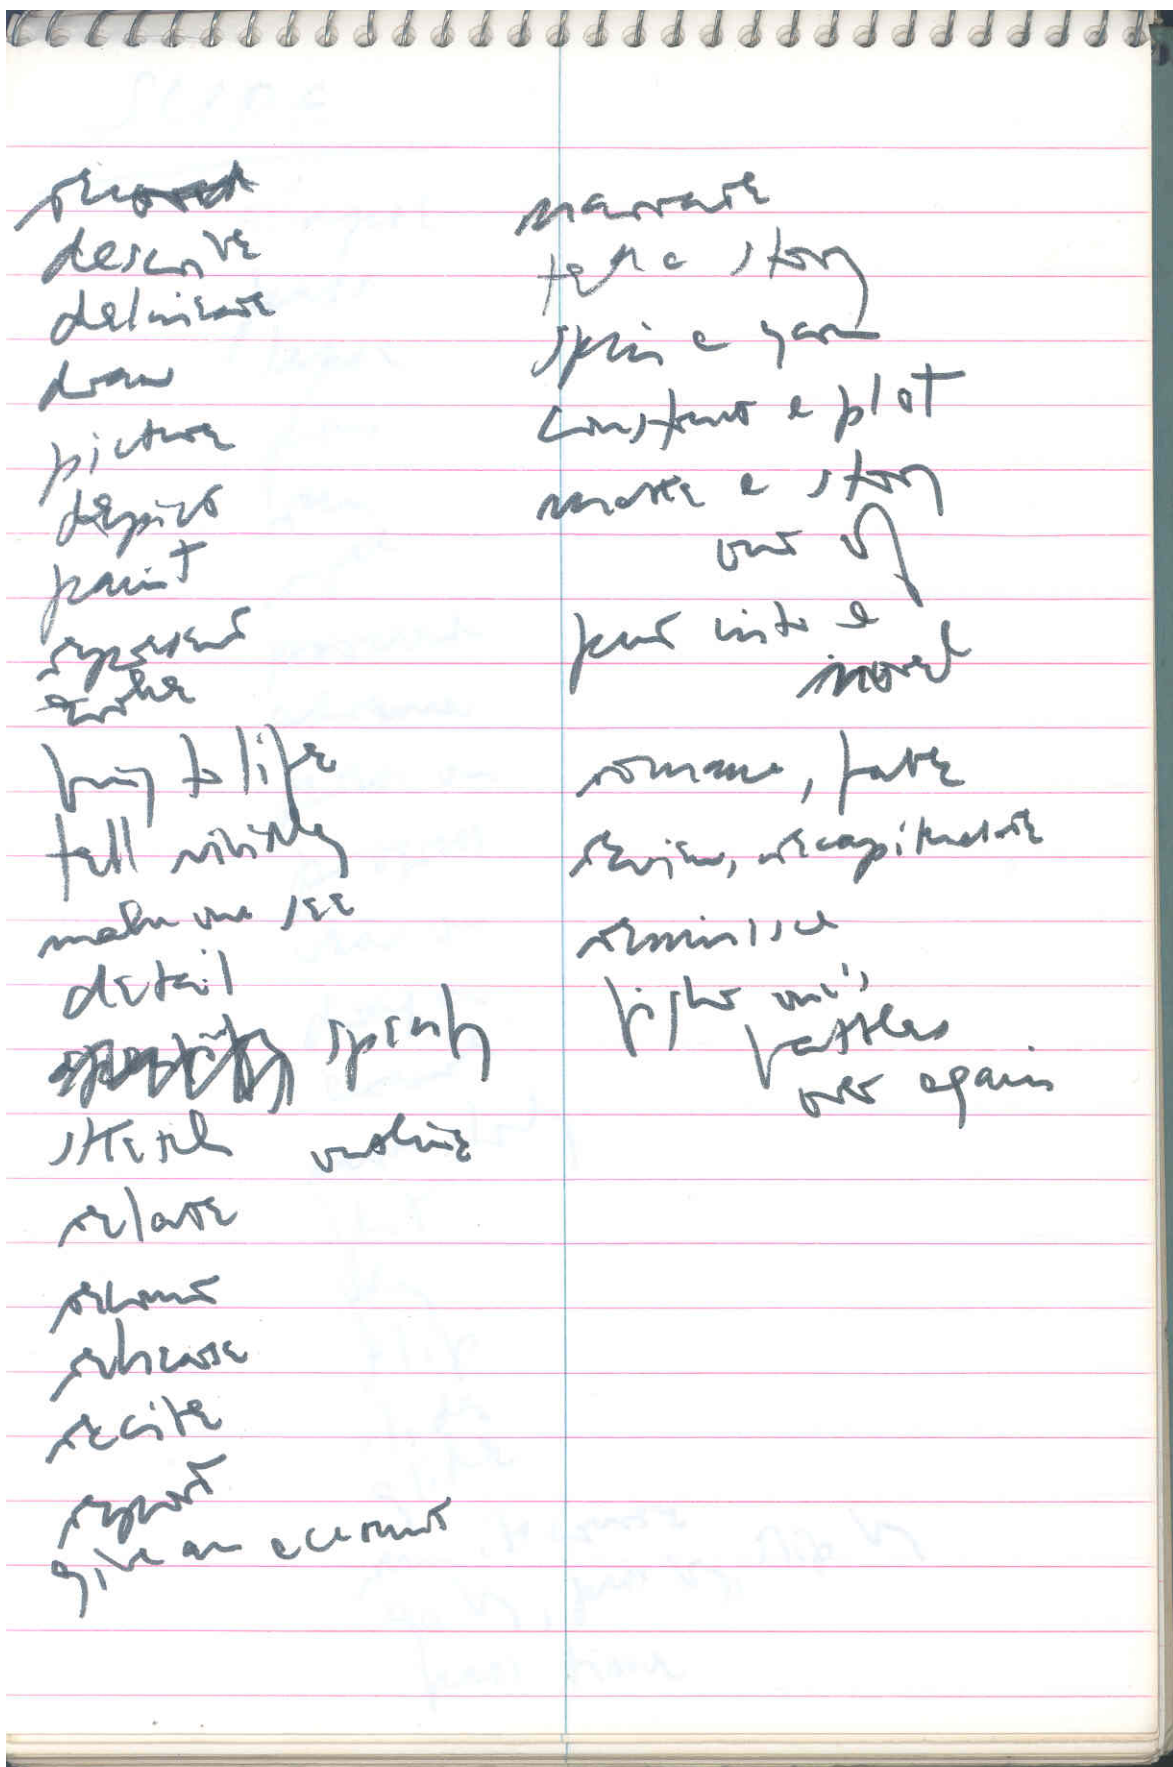 record
describe
delineate
draw
picture
depict
paint
represent
evoke
bring to life
tell vividly
make one see
detail
specify
sketch outline
relate
recount
rehearse
recite
report
give an account
narrate
tell a story
spin a yarn
construct a plot
make a story
out of
put into a
novel
romance, fable
review, recapitulate
reminisce
fight one's
battles
over again